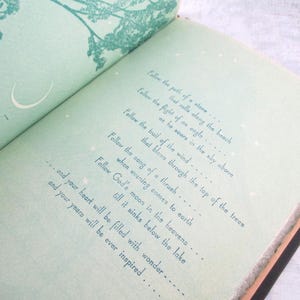 Follow the path of a stone . . .
that rolls along the beach
Follow the flight of an eagle . . . .
as he soars in the sky above
Follow the trail of the wind . . . .
that blows through the top of the trees
Follow the song of a thrush . . . .
when evening comes to earth
Follow God's moon in the heavens . . . .
till it sinks below the lake
. . . . and your heart will be filled with wonder . . . . . .
and your years will be ever inspired . . . . .